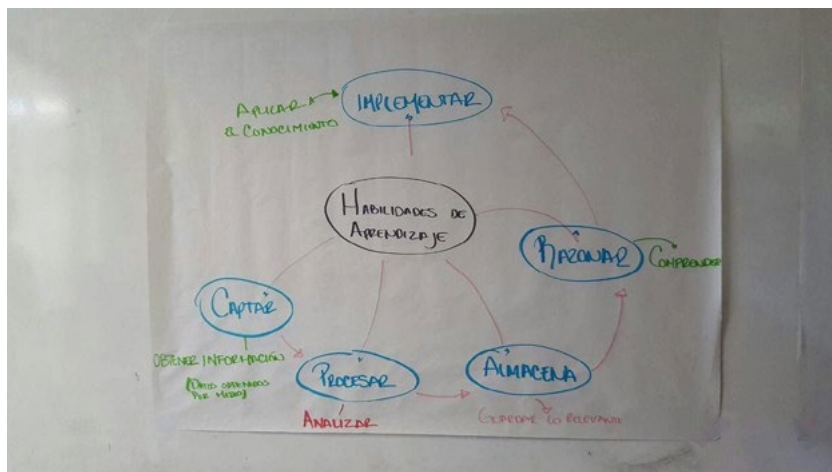 IMPLEMENTAR
APLICAR
EL CONOCIMIENTO
HABILIDADES DE
APRENDIZAJE
RAZONAR
COMPRENDER
CAPTAR
OBTENER INFORMACIÓN
(DATOS OBTENIDOS
POR MEDIO)
PROCESAR
ANALIZAR
ALMACENA
GUARDAR LO RELEVANTE